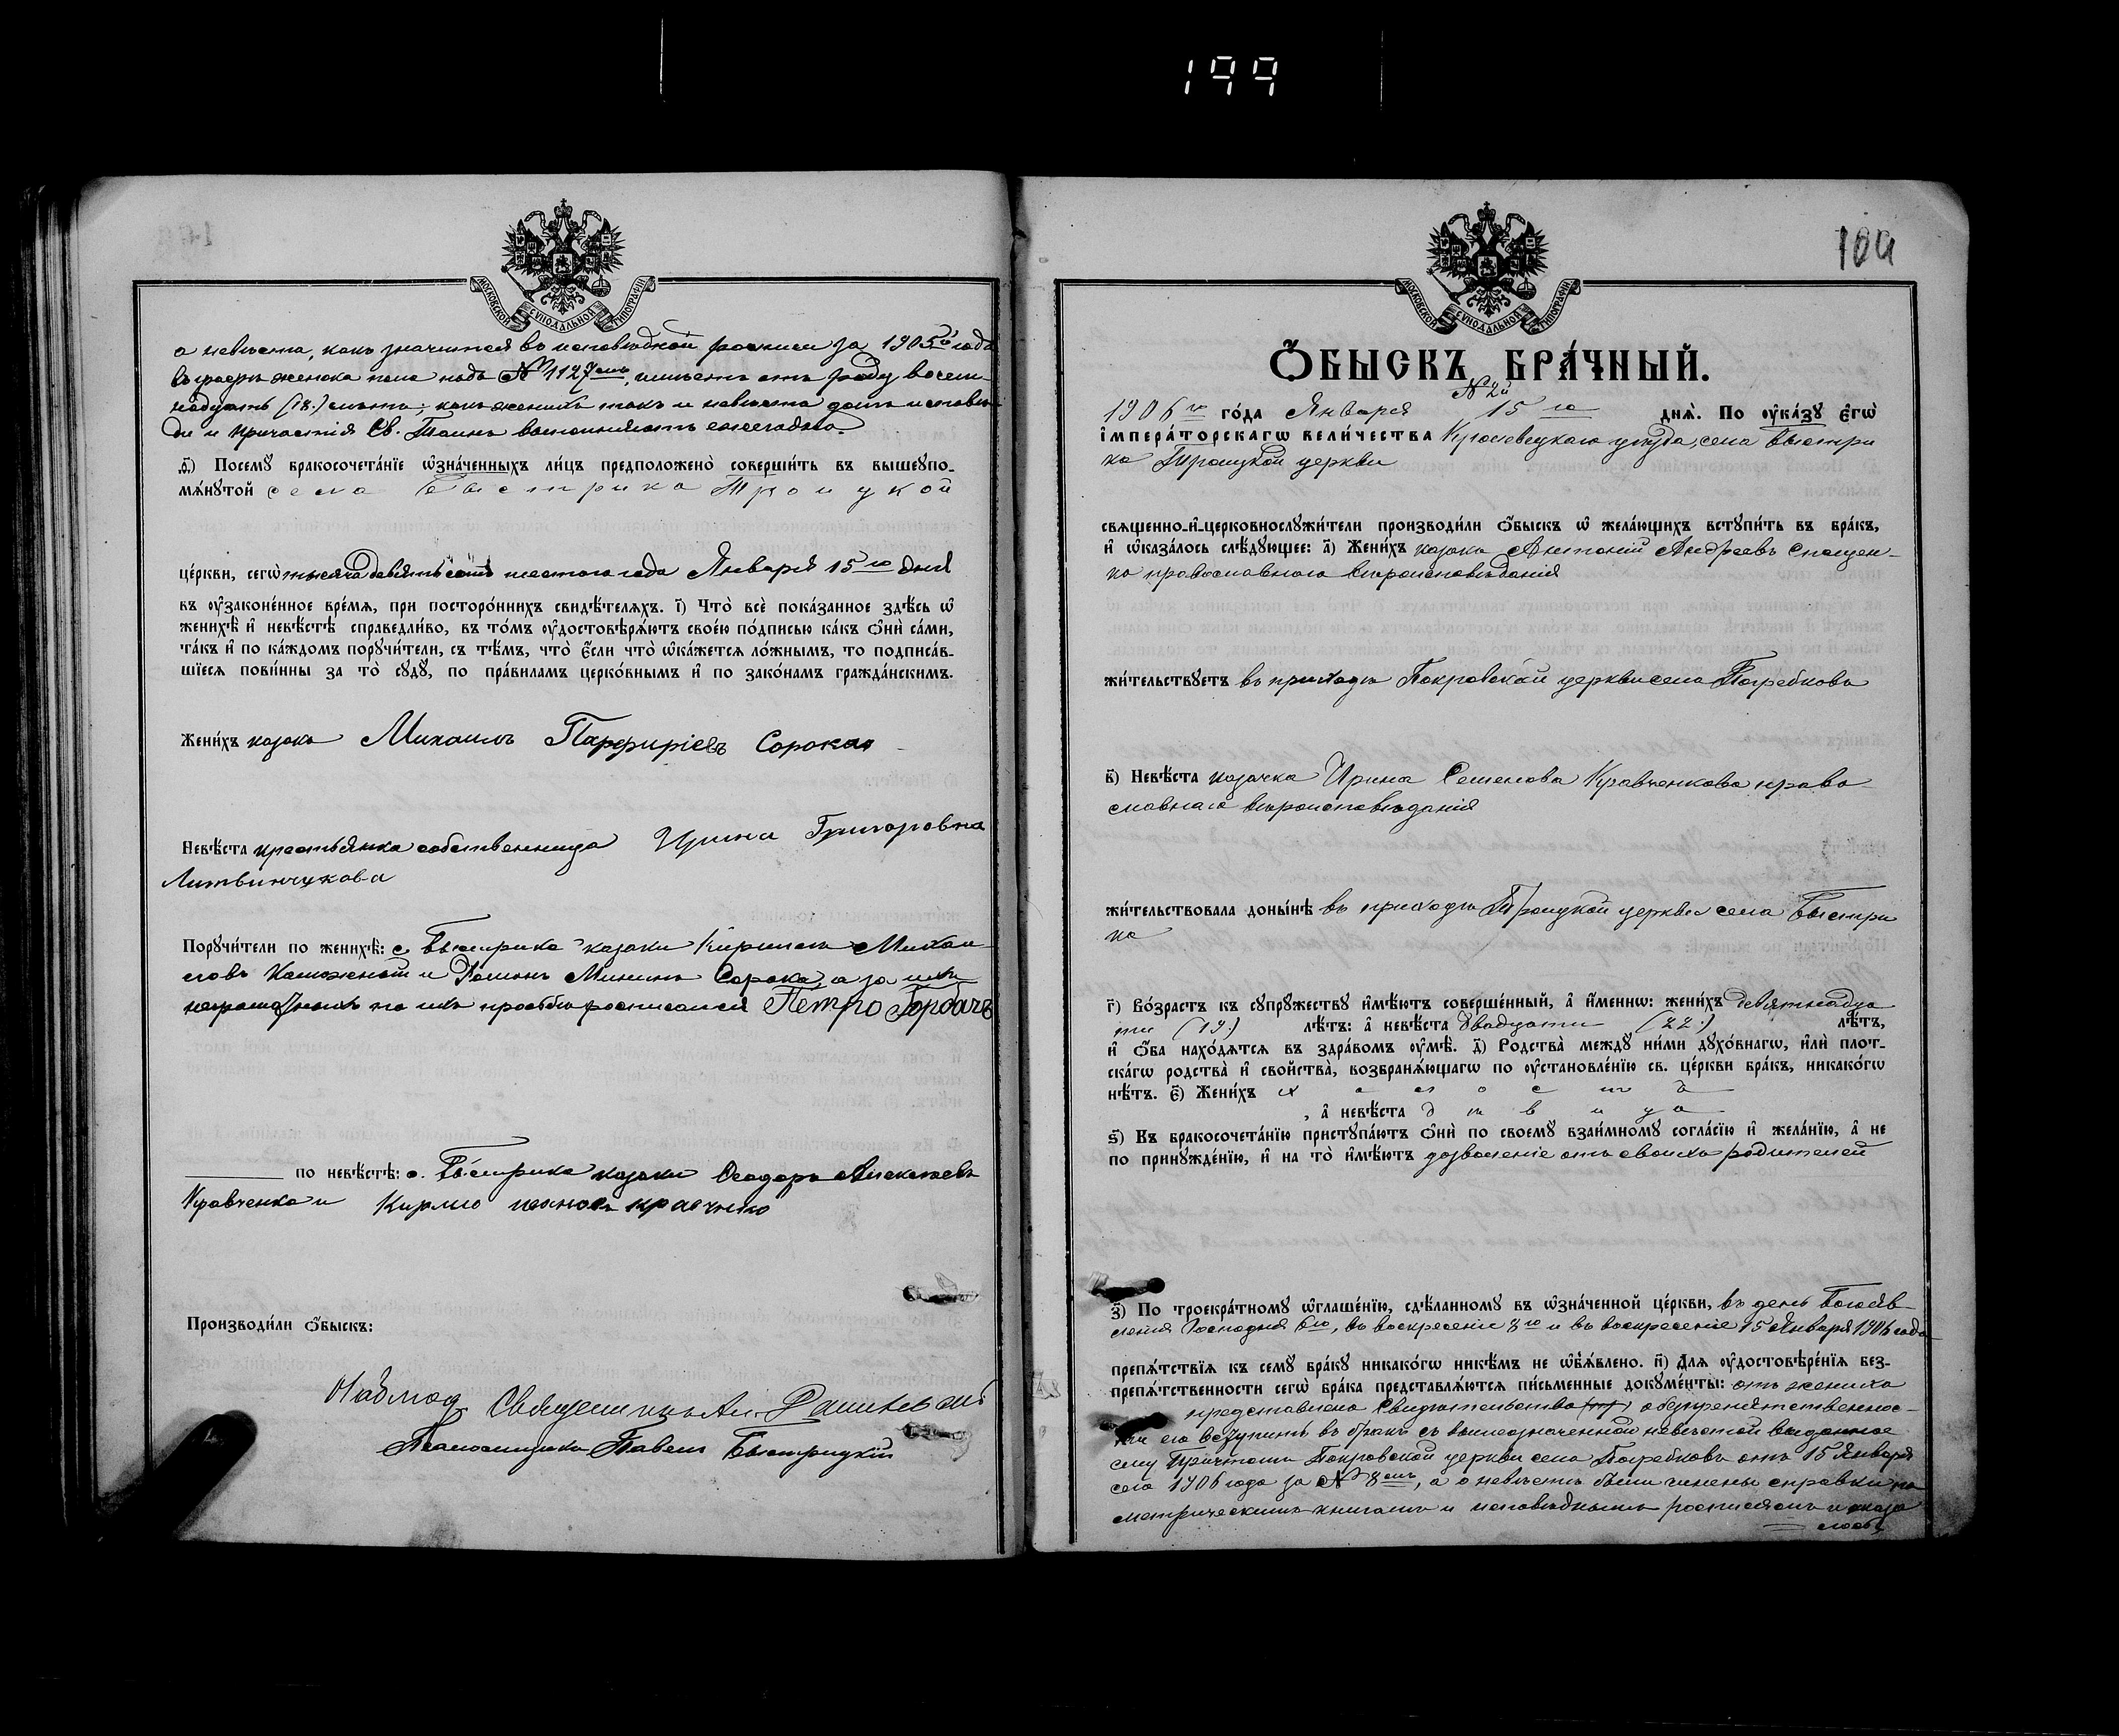 199
МОСКОВСКОЙ СѴНОДАЛЬНОЙ ТИПОГРАФІИ
а невѣста, какъ значится въ исповѣдной росписи за 1905й года
въ графѣ женска пола подъ № 1127емъ, имѣетъ отъ роду восем-
надцать (18.) лѣтъ; какъ женихъ такъ и невѣста долгъ исповѣ-
ди и причастія Св. Таинъ выполняютъ ежегодно.
ѳ҃) Посемꙋ бракосочета́нїе ѡ҆зна́ченныхъ ли́цъ предположено̀ соверши́ть въ вышеꙋпо-
мѧ́нꙋтой села Быстрика Троицкой
це́ркви, сегѡ̀ тысяча девятьсотъ шестого года Января 15го дня
въ ᲂу҆законе́нное вре́мѧ, при посторо́ннихъ свидѣ́телѧхъ. і҃) Что̀ всѐ пока́занное здѣ́сь ѡ҆
женихѣ̀ и҆ невѣ́стѣ справедли́во, въ то́мъ ᲂу҆достовѣрѧ́ютъ свое́ю по́дписью ка́къ ѻ҆нѝ са́ми,
та́къ и҆ по ка́ждомъ порꙋчи́тели, съ тѣ́мъ, что̀ є҆́сли что̀ ѡ҆ка́жетсѧ ло́жнымъ, то подписа́в-
шїесѧ пови́нны за то̀ сꙋдꙋ̀, по пра́виламъ церко́внымъ и҆ по зако́намъ гражда́нскимъ.
Жени́хъ козакъ Михаилъ Парфиріевъ Сорока
Невѣ́ста крестьянка собственница Ирина Григоровна
Литвинчукова
Порꙋчи́тели по женихѣ̀: с. Быстрика козаки Кириллъ Михаи-
ловъ и Романъ Мининъ Сорока, а за ихъ
неграмотныхъ по ихъ просьбѣ росписался Петро Горбачъ
по невѣ́стѣ: с. Быстрика козаки Ѳеодоръ Алексѣевъ
Кравченко и Кирило
Производи́ли ѻ҆́быскъ:
Наблюд. Священникъ
Псаломщикъ Павелъ Быстрицкій
МОСКОВСКОЙ СѴНОДАЛЬНОЙ ТИПОГРАФІИ
Ѻ҆́БЫСКЪ БРА́ЧНЫЙ.
№ 2й
1906го го́да Января 15го днѧ̀. По ᲂу҆ка́зꙋ є҆гѡ̀
і҆мпера́торскагѡ вели́чества Кролевецкаго уѣзда, села Быстри
ка Троицкой церкви
свѧщенно-и҆-церковнослꙋжи́тели производи́ли ѻ҆́быскъ ѡ҆ жела́ющихъ встꙋпи́ть въ бра́къ,
и҆ ѡ҆каза́лось слѣ́дꙋющее: а҃) Жени́хъ козакъ Антоній Андреевъ Спещен-
ко православнаго вѣроисповѣданія
жи́тельствꙋетъ въ приходѣ Покровской церкви села Погребковъ
в҃) Невѣ́ста козачка Ирина Семенова Кравченкова право-
славнаго вѣроисповѣданія
жи́тельствовала доны́нѣ въ приходѣ Троицкой церкви села Быстри
ка
г҃) Во́зрастъ къ сꙋпрꙋ́жествꙋ и҆мѣ́ютъ соверше́нный, а҆ и҆́меннѡ: жени́хъ девятнадца
ти (19.) лѣ́тъ: а҆ невѣ́ста двадцати (22.) лѣ́тъ,
и҆ ѻ҆́ба нахо́дѧтсѧ въ здра́вомъ ᲂу҆мѣ̀. д҃) Родства̀ междꙋ ни́ми дꙋхо́внагѡ, и҆лѝ плот-
ска́гѡ родства̀ и҆ сво́йства, возбранѧ́ющагѡ по ᲂу҆становле́нїю св. це́ркви бра́къ, никако́гѡ
нѣ́тъ. є҃) Жени́хъ холостъ
, а҆ невѣ́ста дѣвица
ѕ҃) Къ бракосочета́нїю пристꙋпа́ютъ ѻ҆нѝ по своемꙋ̀ взаи́мномꙋ согла́сїю и҆ жела́нїю, а҆ не
по принꙋжде́нїю, и҆ на то̀ и҆мѣ́ютъ дозволеніе отъ своихъ родителей
з҃) По троекра́тномꙋ ѡ҆глаше́нїю, сдѣ́ланномꙋ въ ѡ҆зна́ченной це́ркви, въ день Богояв-
ленія Господня 6го, въ воскресеніе 8го и въ воскресеніе 15 Января 1906 года
препѧ́тствїѧ къ семꙋ̀ бра́кꙋ никако́гѡ никѣ́мъ не ѡ҆б̾ѧ́влено. и҃) Длѧ ᲂу҆достовѣре́нїѧ без-
препѧ́тственности сегѡ̀ бра́ка представлѧ́ютсѧ пи́сьменные докꙋме́нты: отъ жениха
представлено Свидѣтельство о безпрепятственнос-
ти его вступить въ бракъ съ вышеозначенной невѣстой выданное
ему Причтомъ Покровской церкви села Погребковъ отъ 15 Января
сего 1906 года за № 8емъ, а о невѣстѣ были чинены справки по
метрическимъ книгамъ и исповѣднымъ росписямъ и оказа
лось,